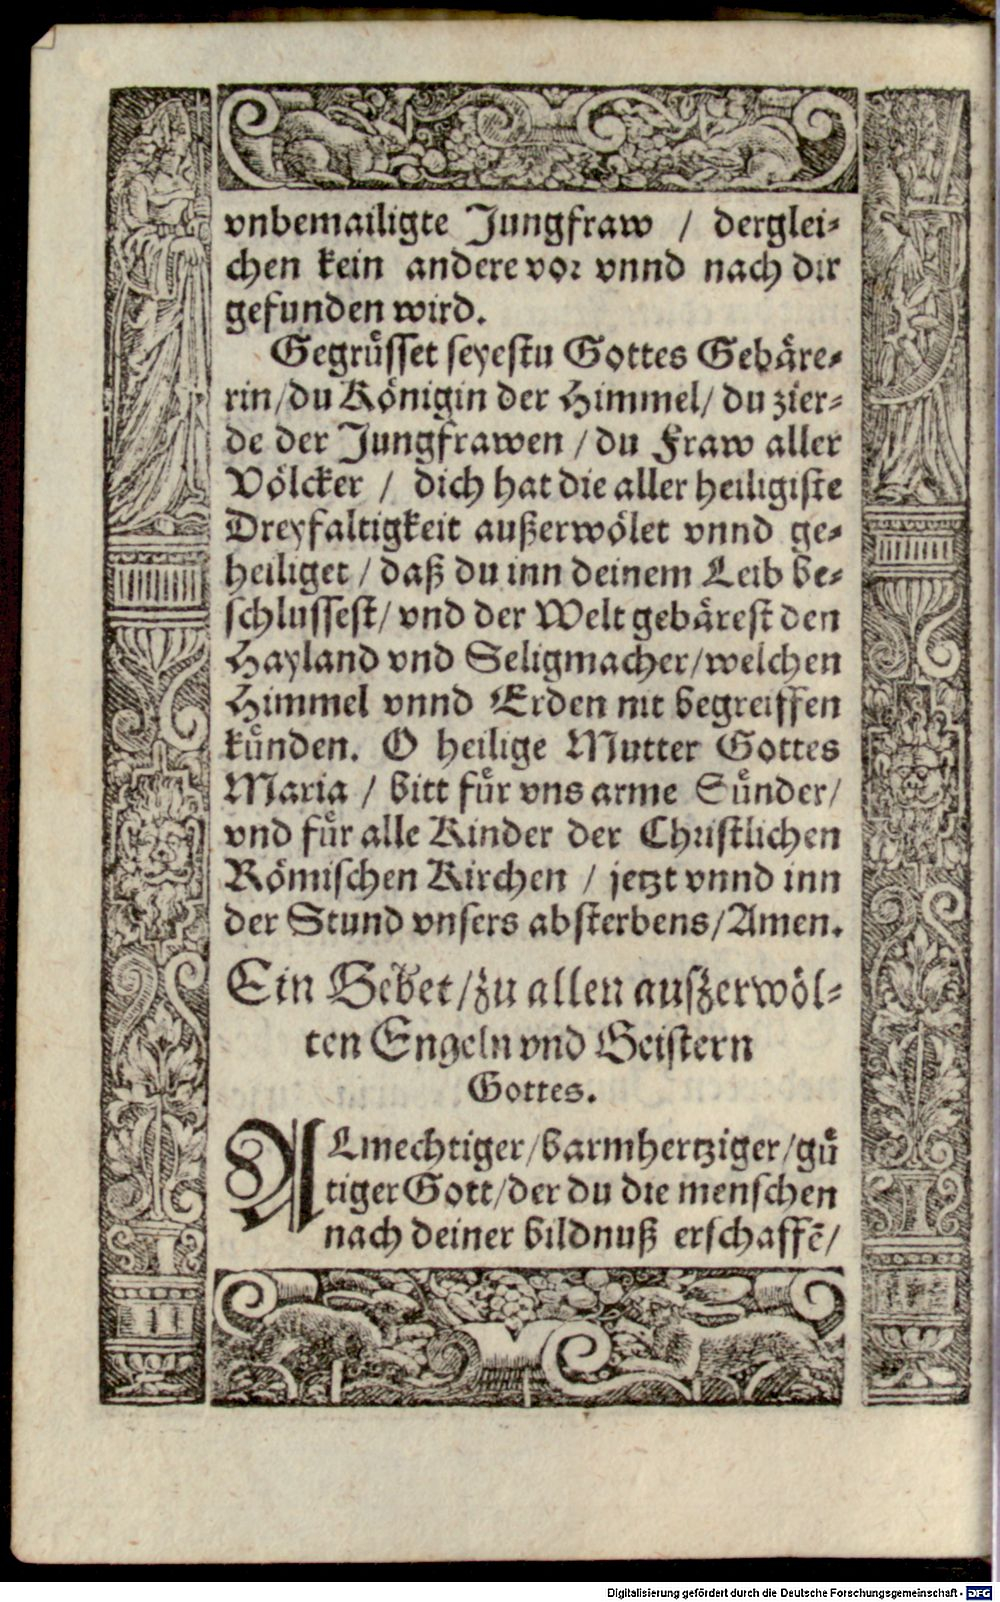 vnbemailigte Jungfraw / derglei⸗
chen kein andere vor vnnd nach dir
gefunden wird.
Gegrüsset seyestu Gottes Gebäre⸗
rin/du Königin der Himmel/ du zier⸗
de der Jungfrawen /du Fraw aller
Völcker / dich hat die aller heiligiste
Dreyfaltigkeit außerwölet vnnd ge⸗
heiliget / daß du inn deinem Leib be⸗
schlussest/ vnd der Welt gebärest den
Hayland vnd Seligmacher/welchen
Himmel vnnd Erden nit begreiffen
künden. O heilige Mutter Gottes
Maria / bitt für vns arme Sünder/
vnd für alle Kinder der Christlichen
Römischen Kirchen / jetzt vnnd inn
der Stund vnsers absterbens/Amen.
Ein Gebet/zu allen außerwöl⸗
ten Engeln vnd Geistern
Gottes.
ALmechtiger/barmhertziger/gü
tiger Gott/der du die menschen
nach deiner bildnuß erschaffē/
Digitalisierung gefördert durch die Deutsche Forschungsgemeinschaft - DFG